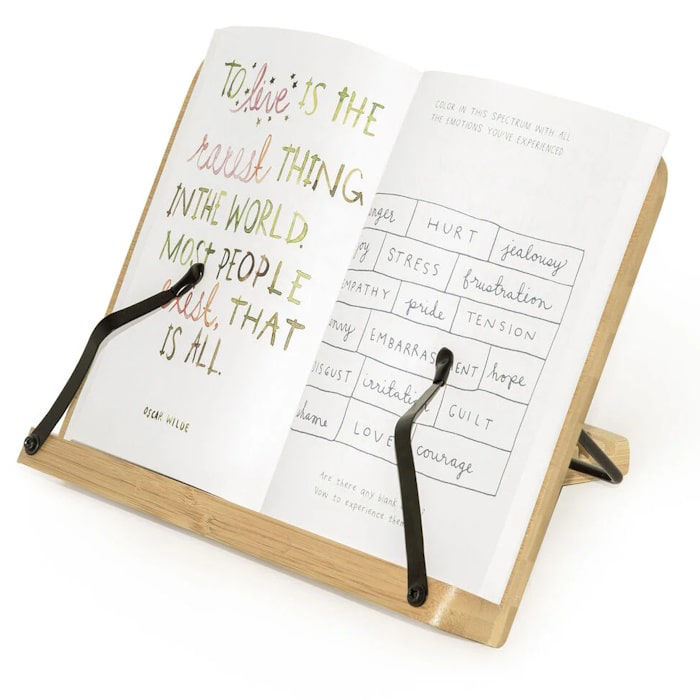 TO live IS THE
rarest THING
IN THE WORLD.
MOST PEOPLE
exist, THAT
IS ALL.
OSCAR WILDE
COLOR IN THIS SPECTRUM WITH ALL
THE EMOTIONS YOU'VE EXPERIENCED
nger HURT jealousy
oy STRESS frustration
MPATHY pride TENSION
nvy EMBARRAS ENT hope
ISGUST irritation GUILT
hame LOVE courage
Are there any blank
Vow to experience them